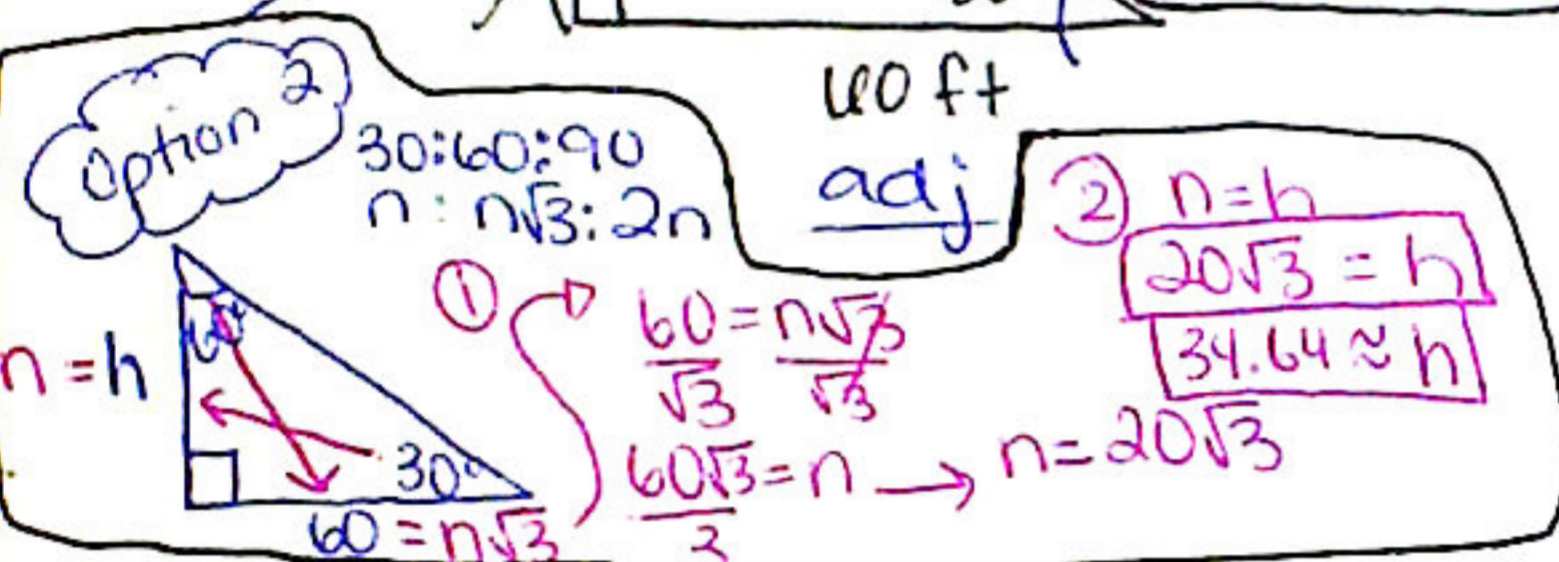 60 ft
adj
Option 2
30:60:90
n : n√3 : 2n
n = h
60°
30°
60 = n√3
①
60 = n√3
√3 √3
60√3 = n → n = 20√3
3
② n = h
20√3 = h
34.64 ≈ h